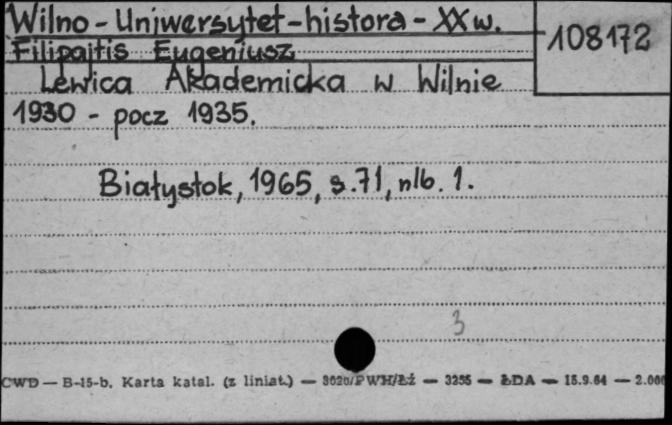 Wilno - Uniwersytet - histora - XX w.
108172
Filipajtis Eugeniusz
Lewica Akademicka w Wilnie
1930 - pocz 1935.
Białystok, 1965, s. 71, nlb. 1.
3
CWD — B-15-b. Karta katal. (z liniat.) — 3020/PWH/Łź — 3255 — ŁDA — 15.9.64 — 2.000